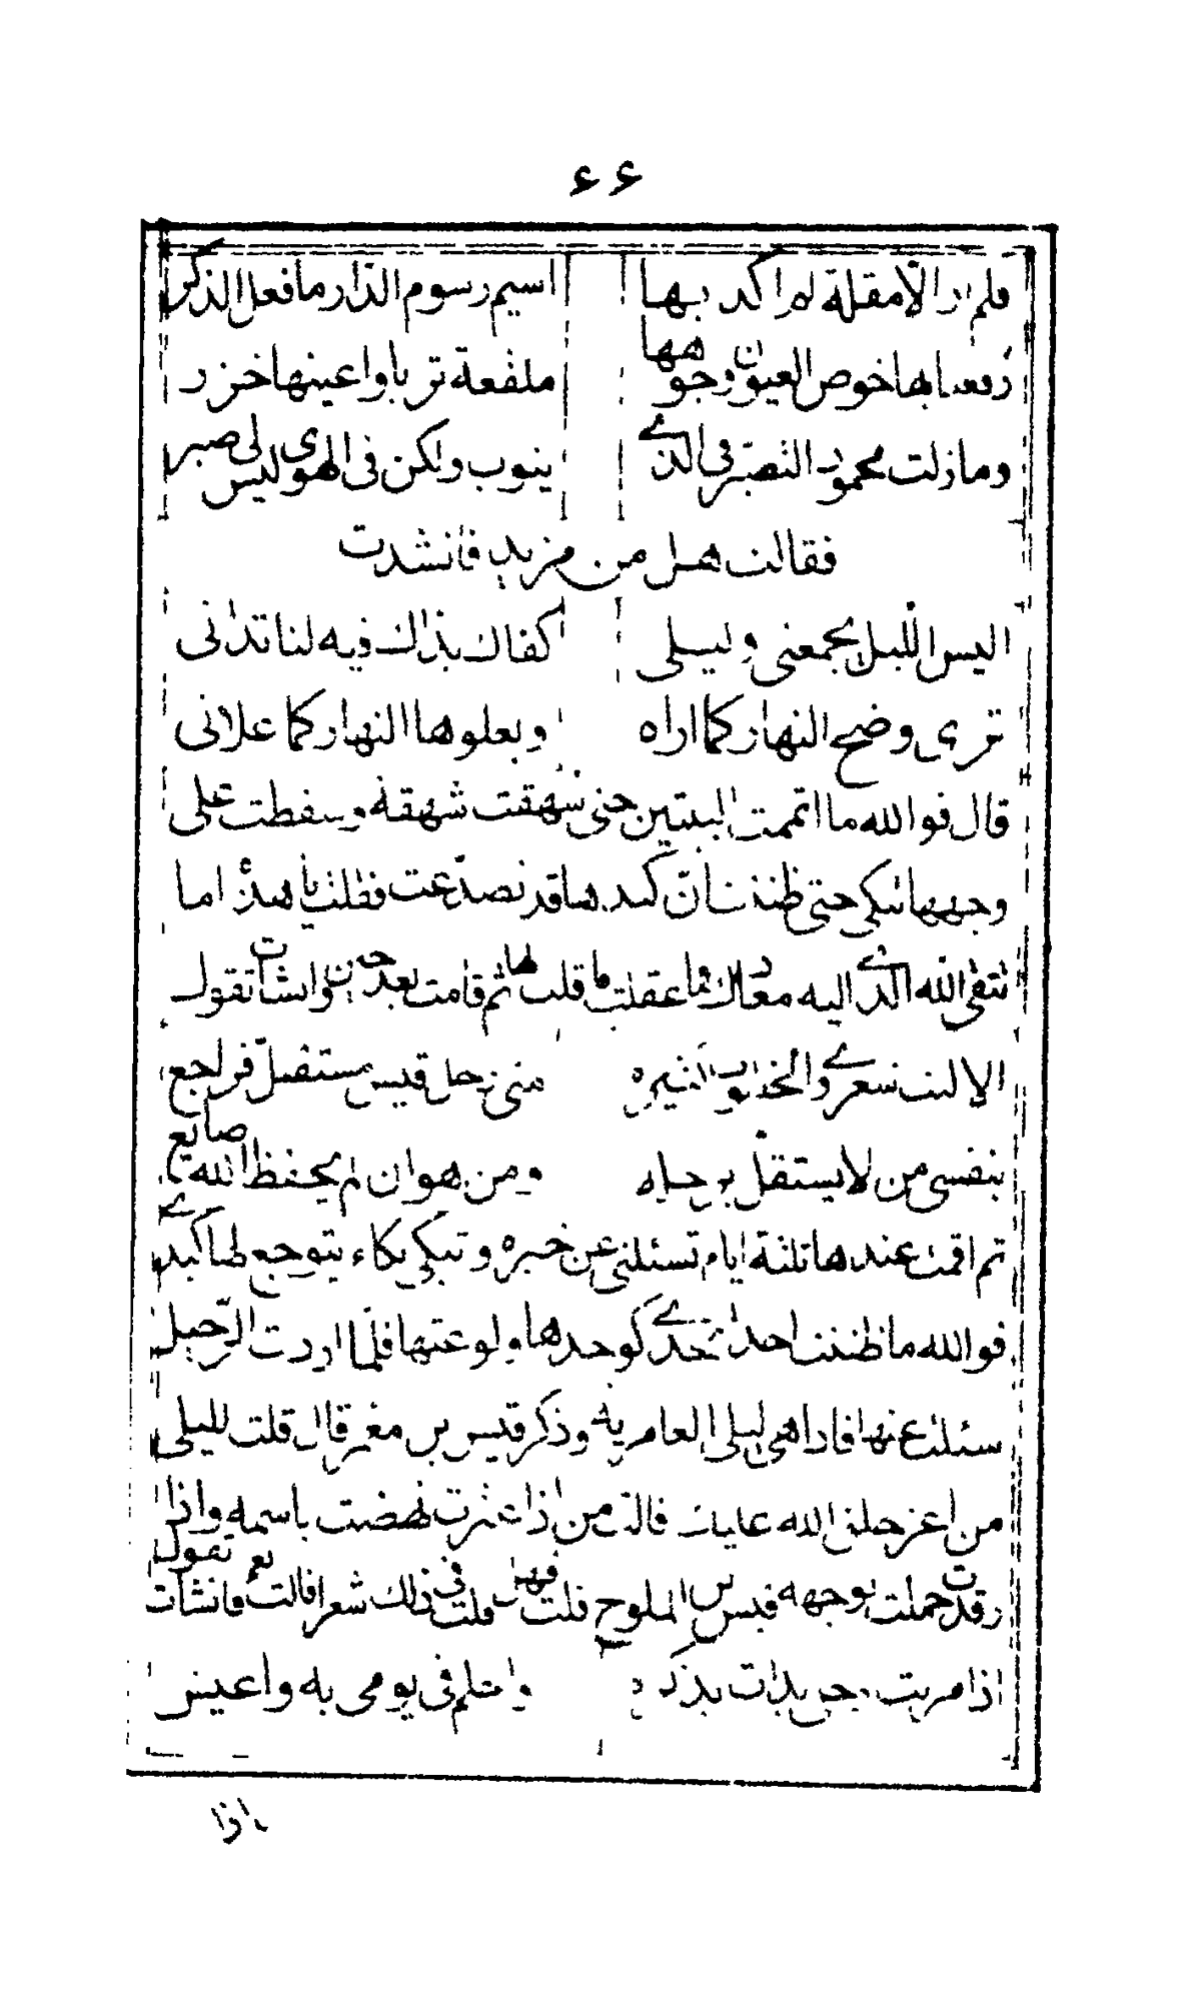 ٤٤
فلم ار الّا مقلة لم اكد بها اسيم رسوم الدّار ما فعل الذكر
رفعنا بها خوص العيون وجوهها ملفعة تربا واعينها خزر
وما زلت محمود التصبّر فى الذى ينوب ولكن فى الهوى ليس لى صبر
فقالت هل من مزيد فانشدت
اليس اللّيل يجمعنى وليلى كفاك بذاك فيه لنا تدانى
ترى وضح النهار كما اراه ويعلوها النهار كما علانى
قال فوالله ما اتممت البيتين حتى شهقت شهقة وسقطت على
وجهها تبكى حتى ظننت انّ كبدها قد تصدّعت فقلت يا هذه اما
تتقى الله الذى اليه معادك فما عقلت ما قلت لها ثم قامت بعد حين وانشات تقول
الا ليت شعرى والخطوب كثيرة متى رحل قيس مستقلّ فراجع
بنفسى من لا يستقلّ برحله ومن هو ان لم يحفظ الله ضايع
ثم اقمت عندها ثلثة ايام تسئلنى عن خبره وتبكى بكاء يتوجع لها كبدى
فوالله ما ظننت احدا يجدى كوجدها ولوعتها فلمّا اردت الرّحيل
سئلت عنها فاذا هى ليلى العامرية وذكر قيس بن معمر قال قلت لليلى
من اعز خلق الله عليك قالت من اذا عثرت نهضت باسمه واذا
رقدت حملت بوجهه قيس بن الملوح قلت فهل قلت فى ذلك شعرا قالت نعم فانشات تقول
اذا بذكره واحلم فى يومى به واعيش
اذا